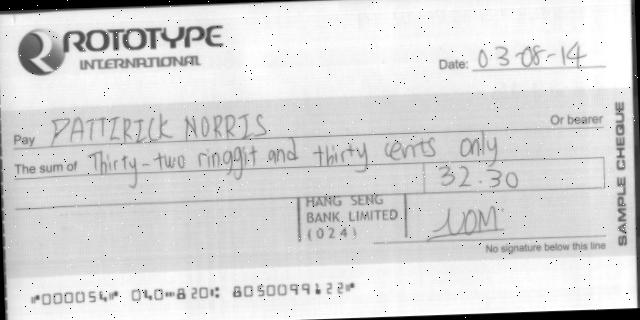 ROTOTYPE
INTERNATIONAL
Date: 03-08-14
Pay PATTIRICK NORRIS Or bearer
The sum of Thirty-two ringgit and thirty cents only
32.30
HANG SENG
BANK, LIMITED
(024)
NOM
No signature below this line
SAMPLE CHEQUE
⑈000054⑈ 040⑉820⑆ 8050099122⑈